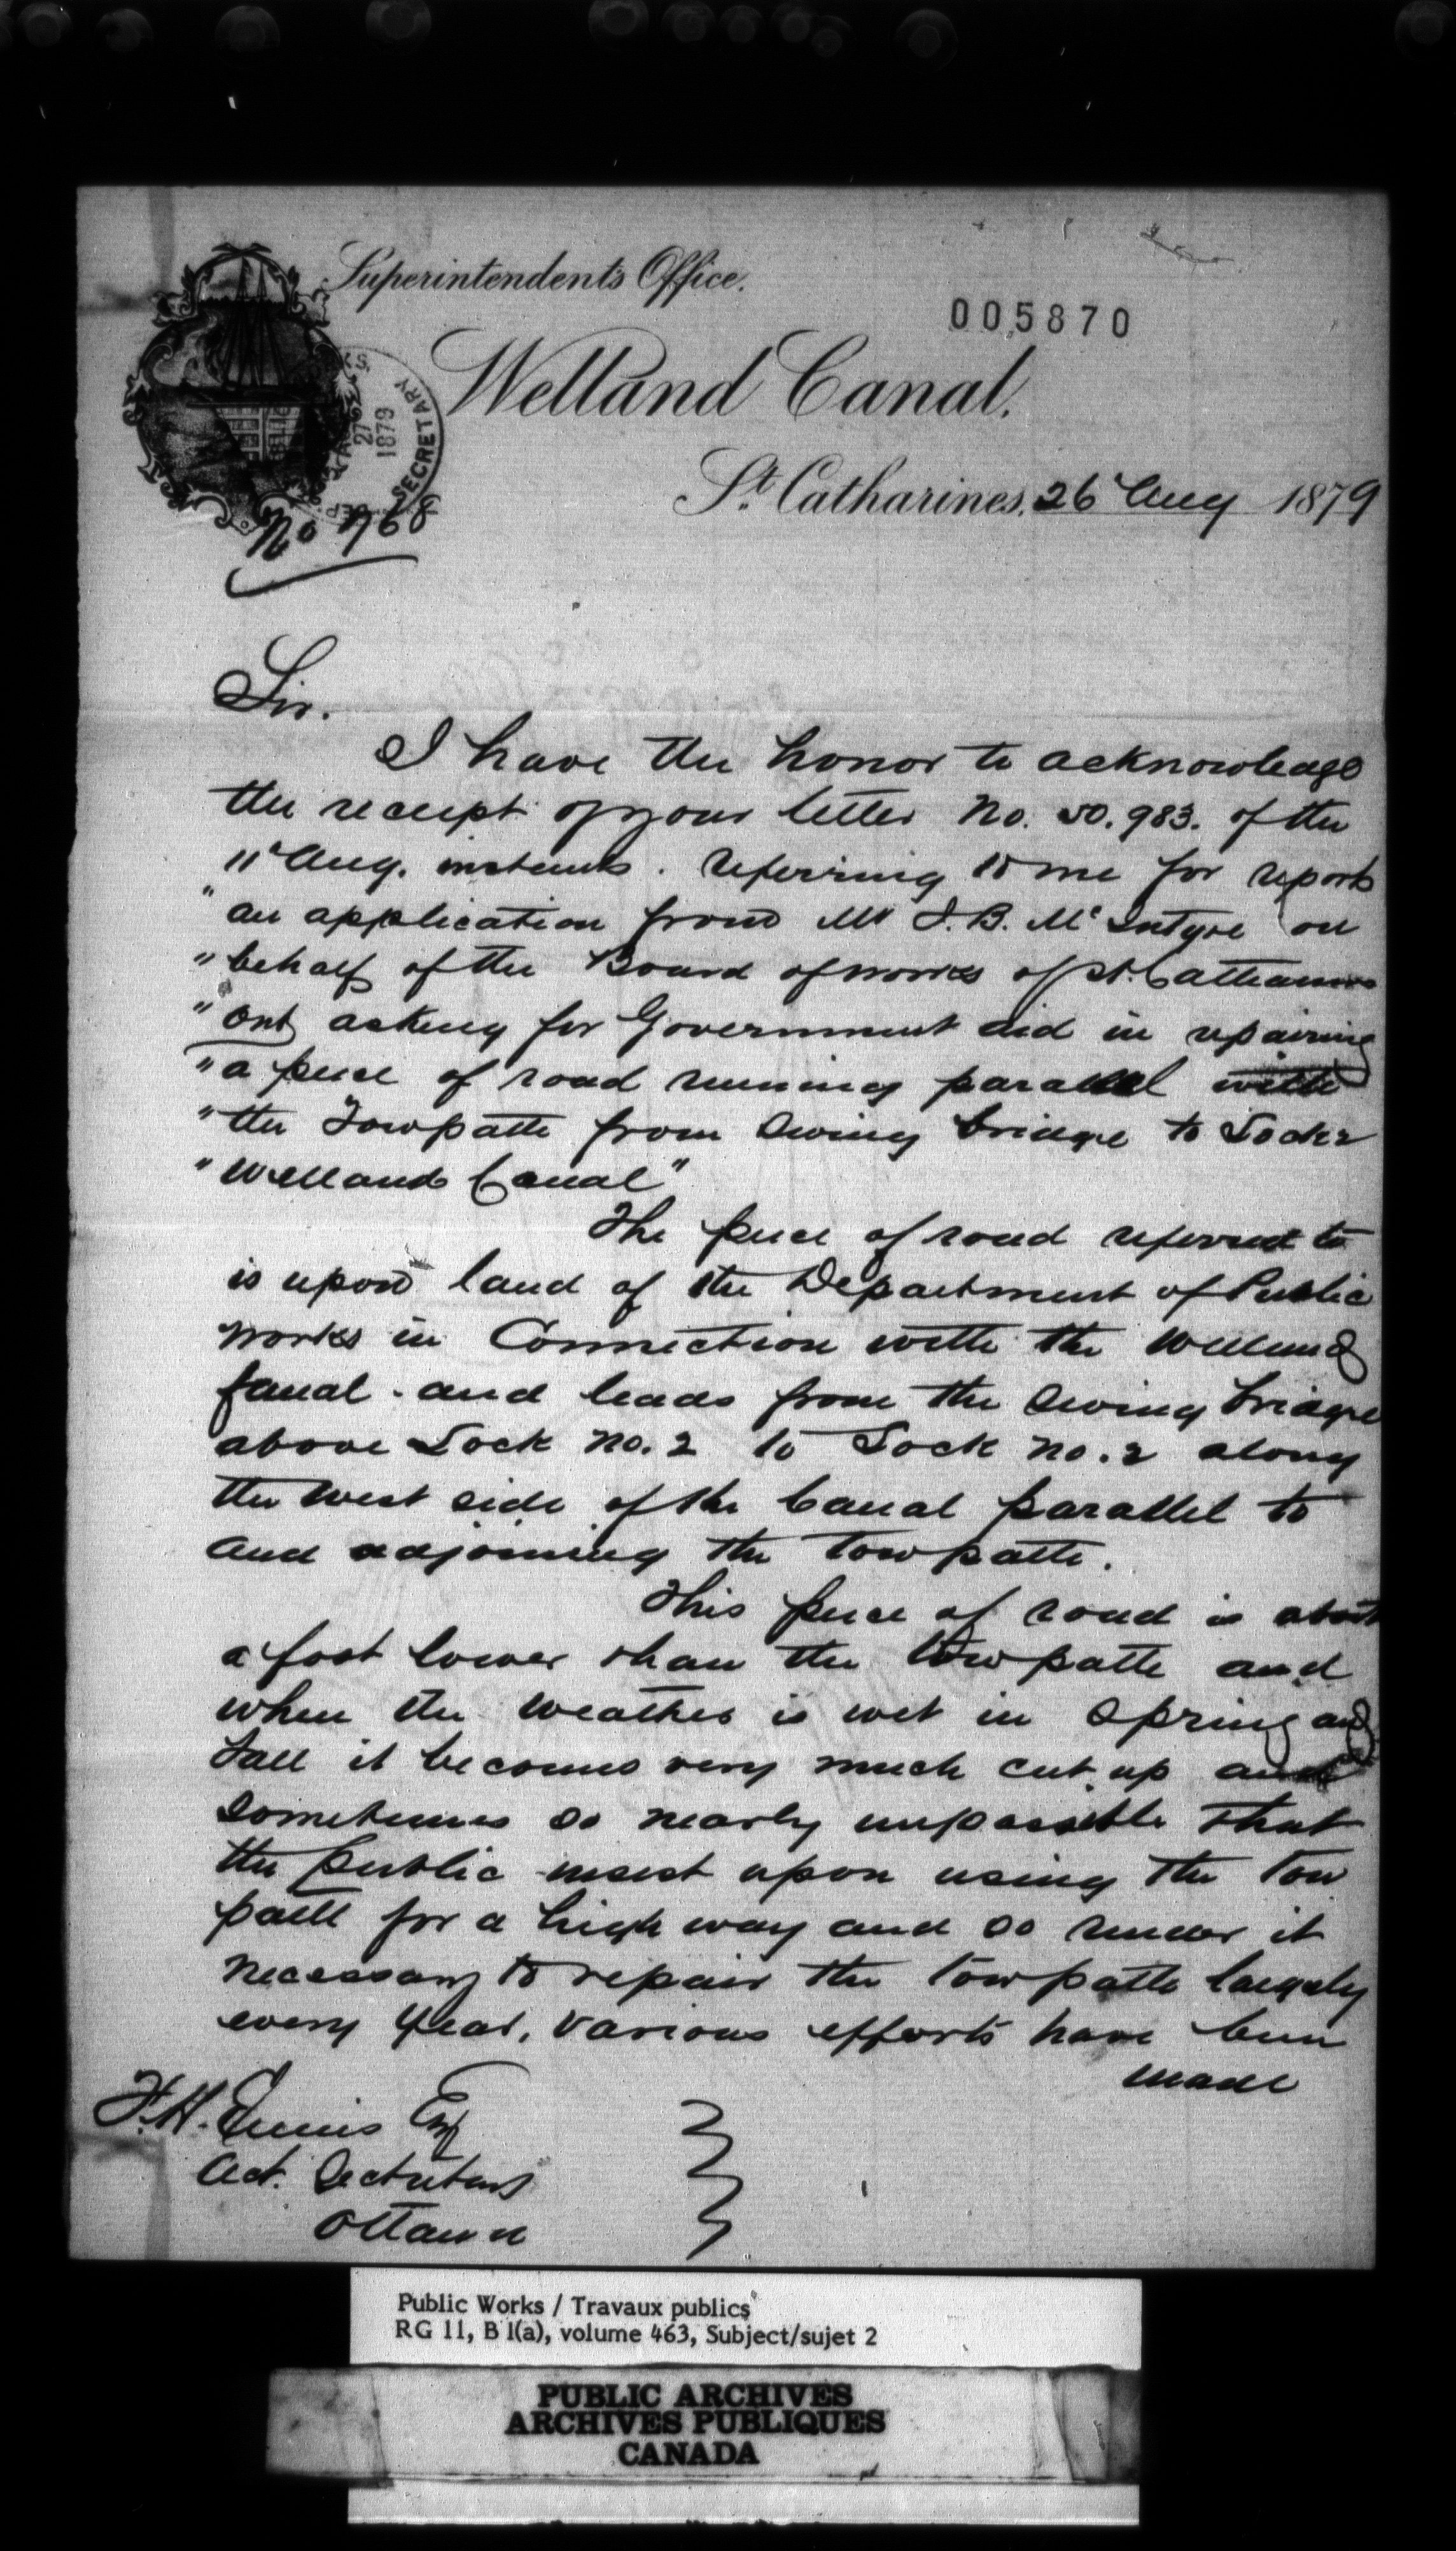 Superintendent's Office.
005870
Welland Canal.
St. Catharines, 26 Aug 1879
27
1879
SECRETARY
No 768
Sir.
I have the honor to acknowledge
the receipt of your letter No. 50.983. of the
11 Aug. instant. referring to me for report
"an application from Mr J. B. McIntyre on
"behalf of the Board of works of St. Catharines
"Ont asking for Government aid in repairing
"a piece of road running parallel with
"the Towpath from Swing bridge to Lock 2
"Welland Canal"
The piece of road referred to
is upon land of the Department of Public
works in Connection with the Welland
Canal. and leads from the Swing bridge
above Lock No. 2 to Lock No. 2 along
the west side of the Canal parallel to
and adjoining the towpath.
This piece of road is about
a foot lower than the towpath and
when the weather is wet in Spring and
Fall it becomes very much cut up and
sometimes so nearly impassible that
the public insist upon using the tow
path for a high way and so render it
necessary to repair the towpath largely
every year, Various efforts have been
made
F. H. Ennis Esq
Act. Secretary
Ottawa
Public Works / Travaux publics
RG 11, B 1(a), volume 463, Subject/sujet 2
PUBLIC ARCHIVES
ARCHIVES PUBLIQUES
CANADA